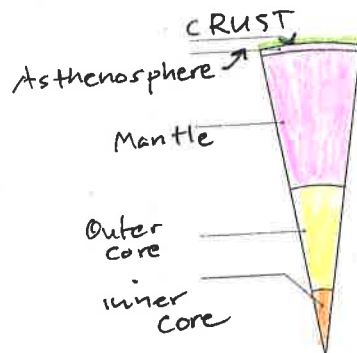 CRUST
Asthenosphere
Mantle
Outer
core
inner
core